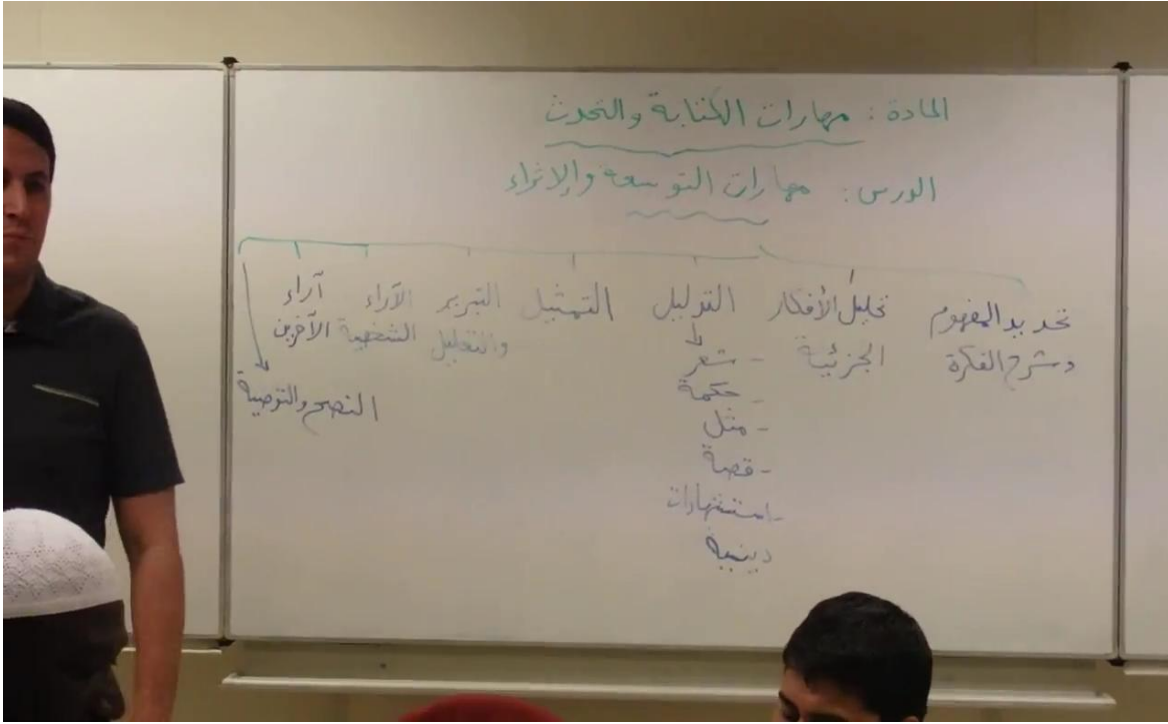 المادة : مهارات الكتابة والتحدث
الدرس : مهارات التوسعة والإثراء
تحديد المفهوم
وشرح الفكرة
تحليل الأفكار
الجزئية
التدليل
- شعر
- حكمة
- مثل
- قصة
- استشهادات
دينية
التمثيل
التبرير
والتعليل
الآراء
الشخصية
آراء
الآخرين
النصح والتوصية